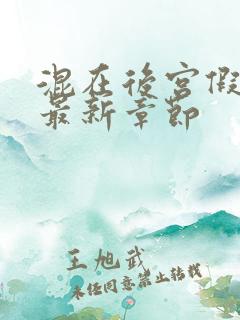 混在後宮假
最新章節
王旭武
未经同意禁止转载